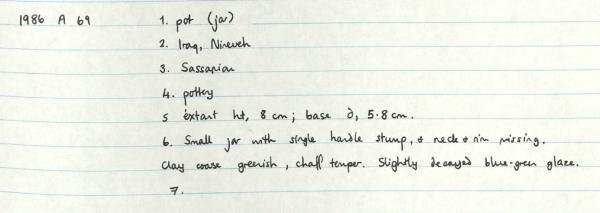 1986 A 69 1. pot (jar)
2. Iraq, Nineveh
3. Sassanian
4. pottery
5 extant ht, 8 cm; base ∂, 5.8 cm.
6. Small jar with single handle stump, & neck & rim missing.
Clay coarse greenish, chaff temper. Slightly decayed blue-green glaze.
7.